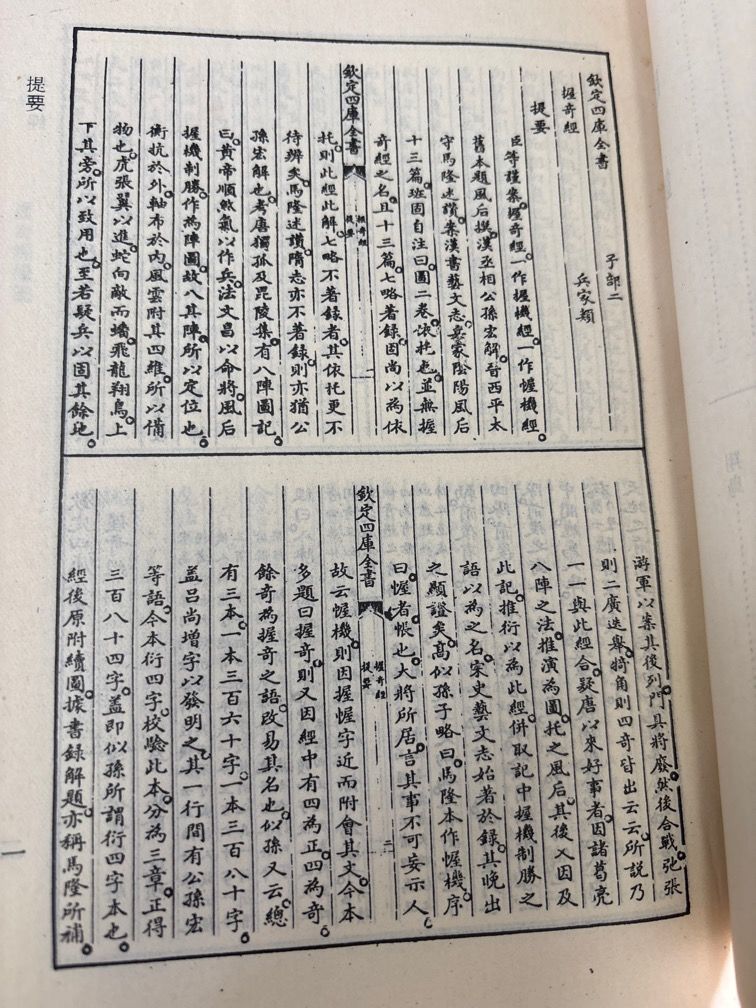 欽定四庫全書
子部二
握奇經
兵家類
提要
臣等謹案。握奇經一作握機經。一作幄機經。
舊本題風后撰。漢丞相公孫宏解。晉西平太
守馬隆述讚。案漢書藝文志。兵家陰陽風后
十三篇。班固自注曰。圖二卷。依托也。並無握
奇經之名。且十三篇。七略著錄。固尚以為依
欽定四庫全書
握奇經
提要
一
托。則此經此解。七略不著錄者。其依托更不
待辨矣。馬隆述讚。隋志亦不著錄。則亦猶公
孫宏解也。考唐獨孤及毘陵集。有八陣圖記
曰。黃帝順煞氣以作兵。法文昌以命將。風后
握機制勝。作為陣圖。故八其陣。所以定位也。
衡抗於外。軸布於內。風雲附其四維。所以備
物也。虎張翼以進。蛇向敵而蟠。飛龍翔鳥。上
下其旁。所以致用也。至若疑兵以固其餘地。
游軍以案其後列。門具將發。然後合戰。弛張
則二廣迭舉。犄角則四奇皆出云云。所說乃
一一與此經合。疑唐以來好事者。因諸葛亮
八陣之法。推演為圖。托之風后。其後又因及
此記。推衍以為此經。併取記中握機制勝之
語以為之名。宋史藝文志始著於錄。其晚出
之顯證矣。高似孫子略曰。馬隆本作幄機。序
曰。幄者帳也。大將所居。言其事不可妄示人。
欽定四庫全書
握奇經
提要
二
故云幄機。則因握幄字近而附會其文。今本
多題曰握奇。則又因經中有四為正。四為奇。
餘奇為握奇之語。改易其名也。似孫又云。總
有三本。一本三百六十字。一本三百八十字。
蓋呂尚增字以發明之。其一行間有公孫宏
等語。今本衍四字。校驗此本。分為三章。正得
三百八十四字。蓋即似孫所謂衍四字本也。
經後原附續圖。據書錄解題。亦稱馬隆所補。
提要
一